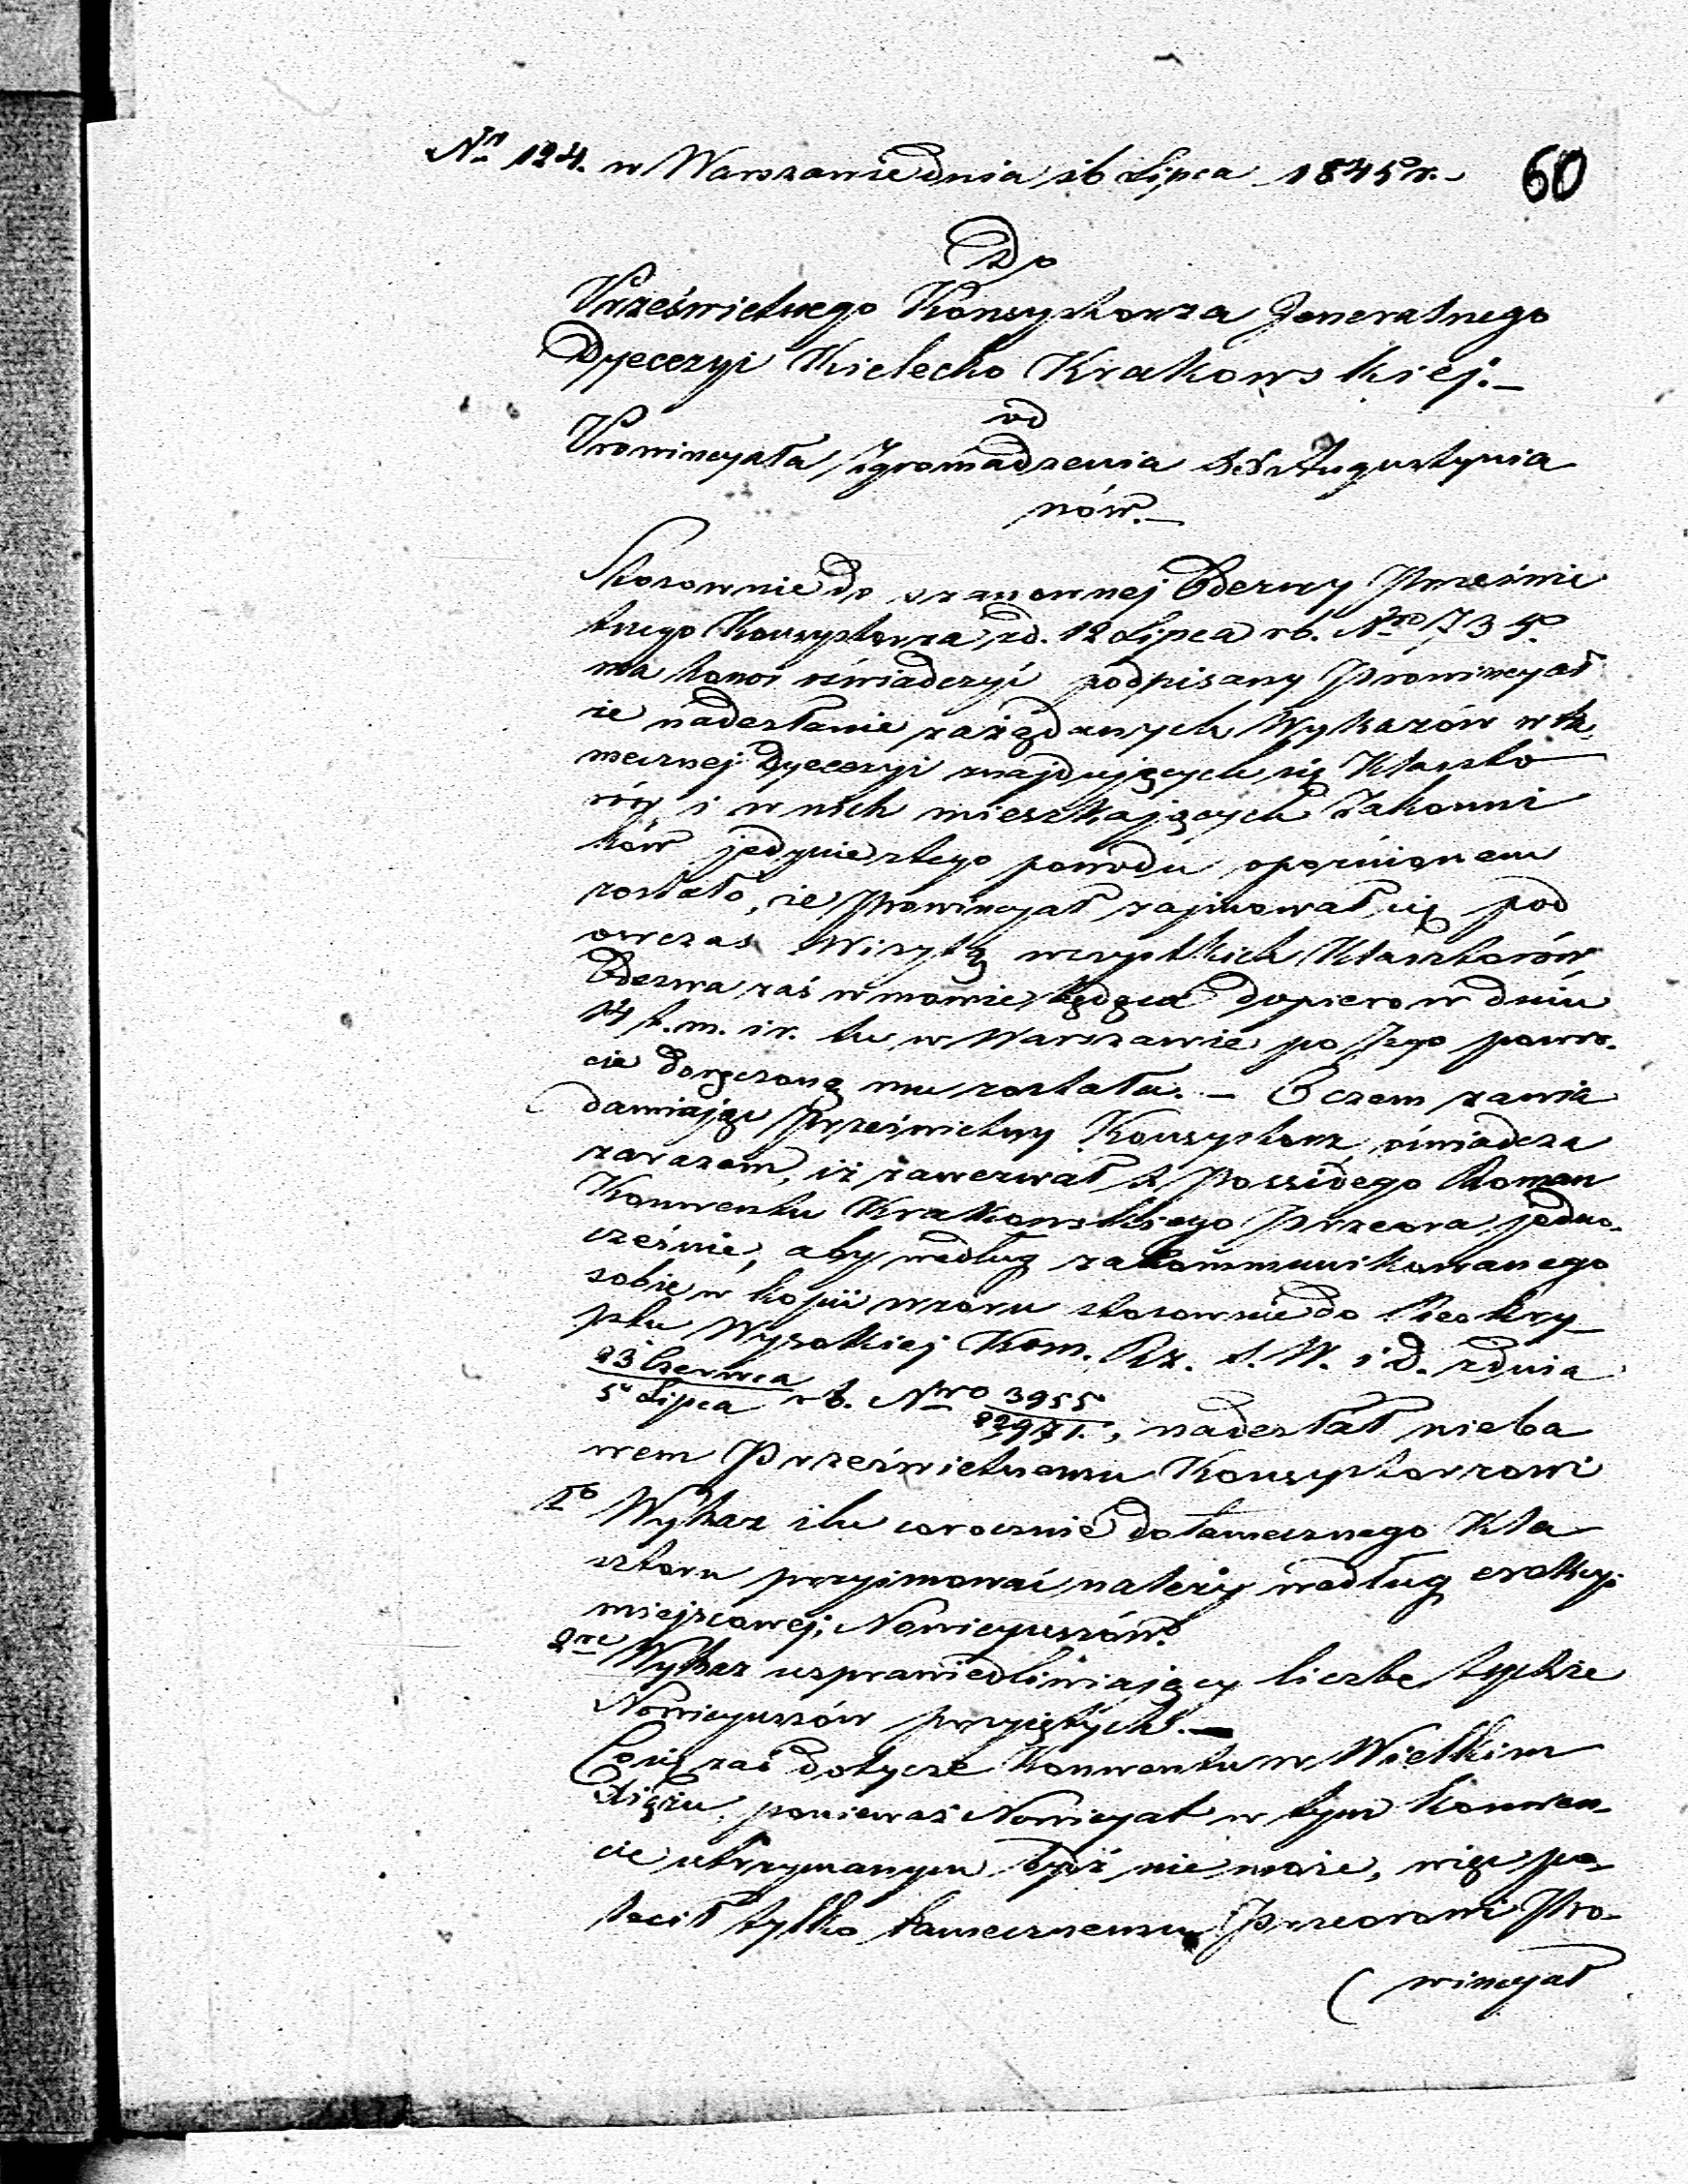 Nr 124. w Warszawie dnia 16 Lipca 1845 r.
60
Do
Prześwietnego Konsystorza Jeneralnego
Dyecezyi Kielecko Krakowskiej.–
od
Prowincyała Zgromadzenia XX Augustynia
nów.–
Stosownie do szanownej Odezwy Prześwie
tnego Konsystorza z d. 12 Lipca rb. Nro 735
ma honor oświadczyć podpisany Prowincyał
że nadesłanie zażądanych Wykazów w ta
mecznej Dyecezyi znajdujących się Klaszto
rów i w nich mieszkających Zakonni
ków jedynie z tego powodu opóźnionem
zostało, że Prowincyał zajmował się pod
owczas Wizytą wszystkich Klasztorów
Odezwa zaś w mowie będąca dopiero w dniu
14 b. m. i r. tu w Warszawie po Jego powro-
cie doręczoną mu została.– O czem zawia
damiając Prześwietny Konsystorz, oświadcza
zarazem, iż zawezwał X Possidego Roman
Konwentu Krakowskiego Przeora jedno-
cześnie, aby według zakommunikowanego
sobie w kopii wzoru stosownie do Reskry-
ptu Wysokiej Kom. Rz. S. W. i D. z dnia
23 Czerwca
5 Lipca rb. Nro 3955
, nadesłał nieba
wem Prześwietnemu Konsystorzowi
1o Wykaz ilu corocznie do tamecznego Kla
sztoru przyjmować należy według erekcyi
miejscowej, Nowicyuszów.
2re Wykaz usprawiedliwiający liczbę tychże
Nowicyuszów przyjętych.–
Co się zaś dotycze Konwentu w Wielkim
Książu, ponieważ Nowicyat w tym Konwen-
cie utrzymanym być nie może, więc po-
lecił tylko tamecznemu Przeorowi Pro-
wincyał